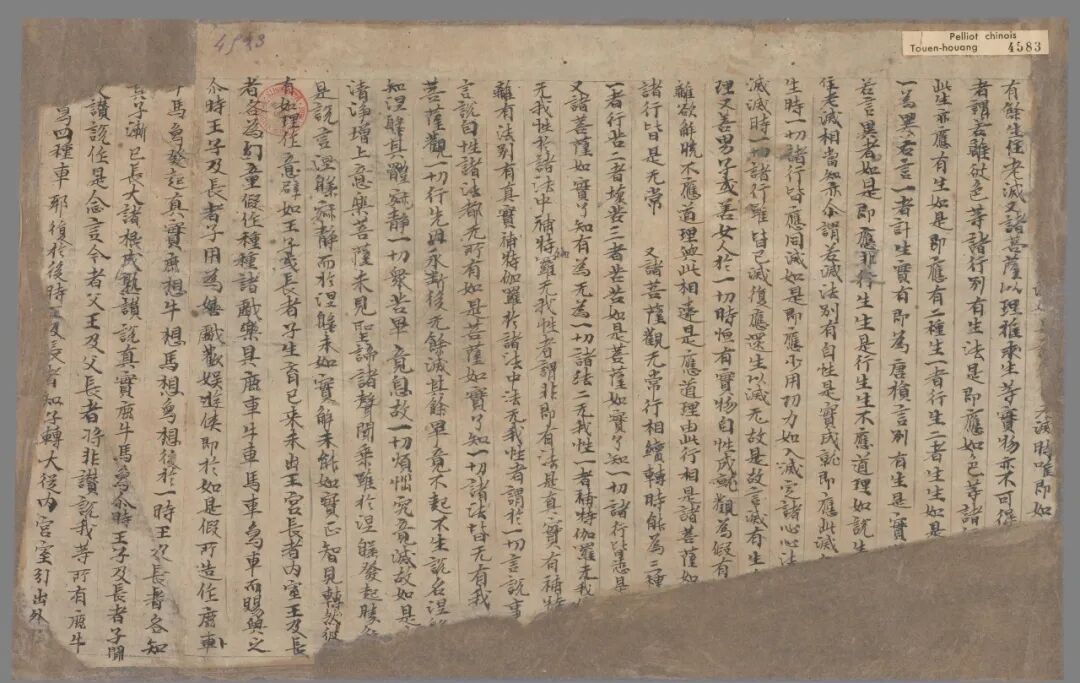 滅時唯即如
有餘生住老滅又諸菩薩以理推求生等實物亦不可得
者謂若離於色等諸行別有生法是即應如色等諸
此生亦應有生如是即應有二種生一者行生二者生生如是
一為異若言一者計生實有即為唐捐言別有生是實
若言異者如是即應非行生生是行生生不應道理如說生
住老滅相當知亦尒謂若滅法別有自性是實成就即應此滅
生時一切諸行皆應同滅如是即應少用功力如入滅定諸心心法
滅滅時一切諸行雖皆已滅復應還生以滅无故是故言滅有生
理又善男子或善女人於一切時恒有實物自性成就觀為假有
離欲解脫不應道理與此相違是應道理由此行相是諸菩薩如
諸行皆是无常 又諸菩薩觀无常行相續轉時能為二種
一者行苦二者壞苦三者苦苦如是菩薩如實了知一切諸行皆悉是
又諸菩薩如實了知有為无為一切諸法二无我性一者補特伽羅无我
无我性於諸法中補特伽羅无我性者謂非即有法是真實有補特
離有法別有真實補特伽羅於諸法中法无我性者謂於一切言說事
言說自性諸法都无所有如是菩薩如實了知一切諸法皆无有我
菩薩觀一切行先因永斷後无餘滅其餘畢竟不起不生說名涅槃
知涅槃其體寂靜一切衆苦畢竟息故一切煩惱究竟滅故如是
清淨增上意樂菩薩未見聖諦諸聲聞乘雖於涅槃發起勝
是說言涅槃寂靜而於涅槃未如實解未能如實正智見轉然彼
有如理作意譬如王子或長者子生育已來未出王宮長者內室王及長
者各為幻童假作種種諸戲樂具鹿車牛車馬車象車而賜與之
尒時王子及長者子用為嬉戲歡娛遊佚即於如是假所造作鹿車
牛馬象發起真實鹿想牛想馬想象想後於一時王及長者各知
其子漸已長大諸根成熟讚說真實鹿牛馬象尒時王子及長者子聞
讚說作是念言今者父王及父長者將非讚說我等所有鹿牛
象四種車耶復於後時王及長者知子轉大從內宮室引出外
Pelliot chinois
Touen-houang 4583